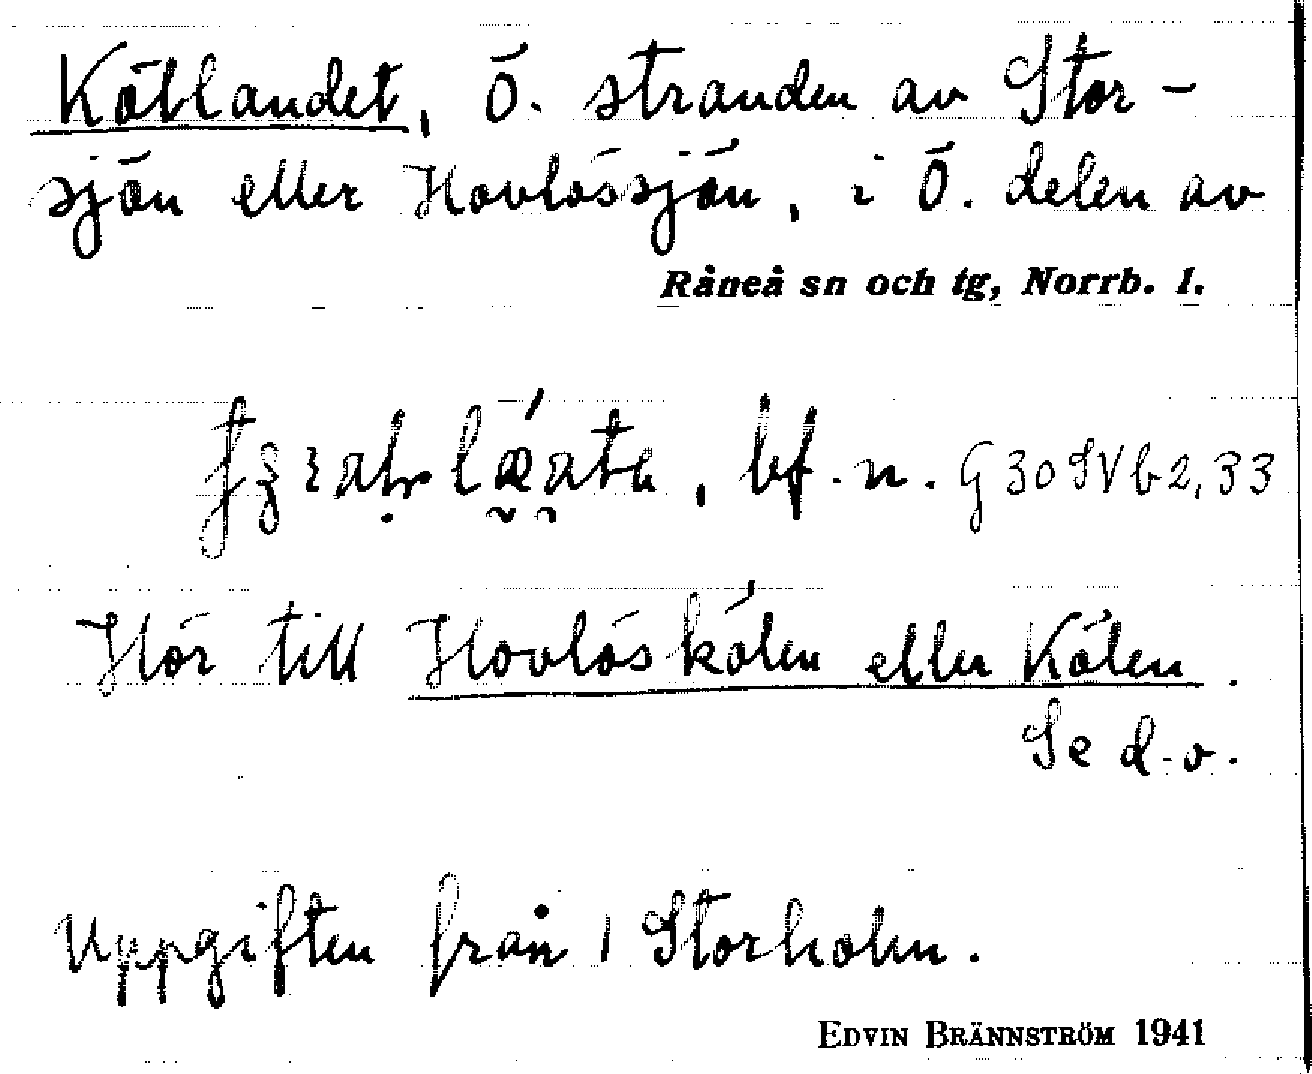 Kätlandet, Ö. stranden av Stor-
sjön eller Hovlössjön, i Ö. delen av
Råneå sn och tg, Norrb. l.
bf. n. G30SVb2,33
Hör till Hovlöskölen eller Kölen.
Se d.o.
Uppgiften från 1 Storholm.
EDVIN BRÄNNSTRÖM 1941